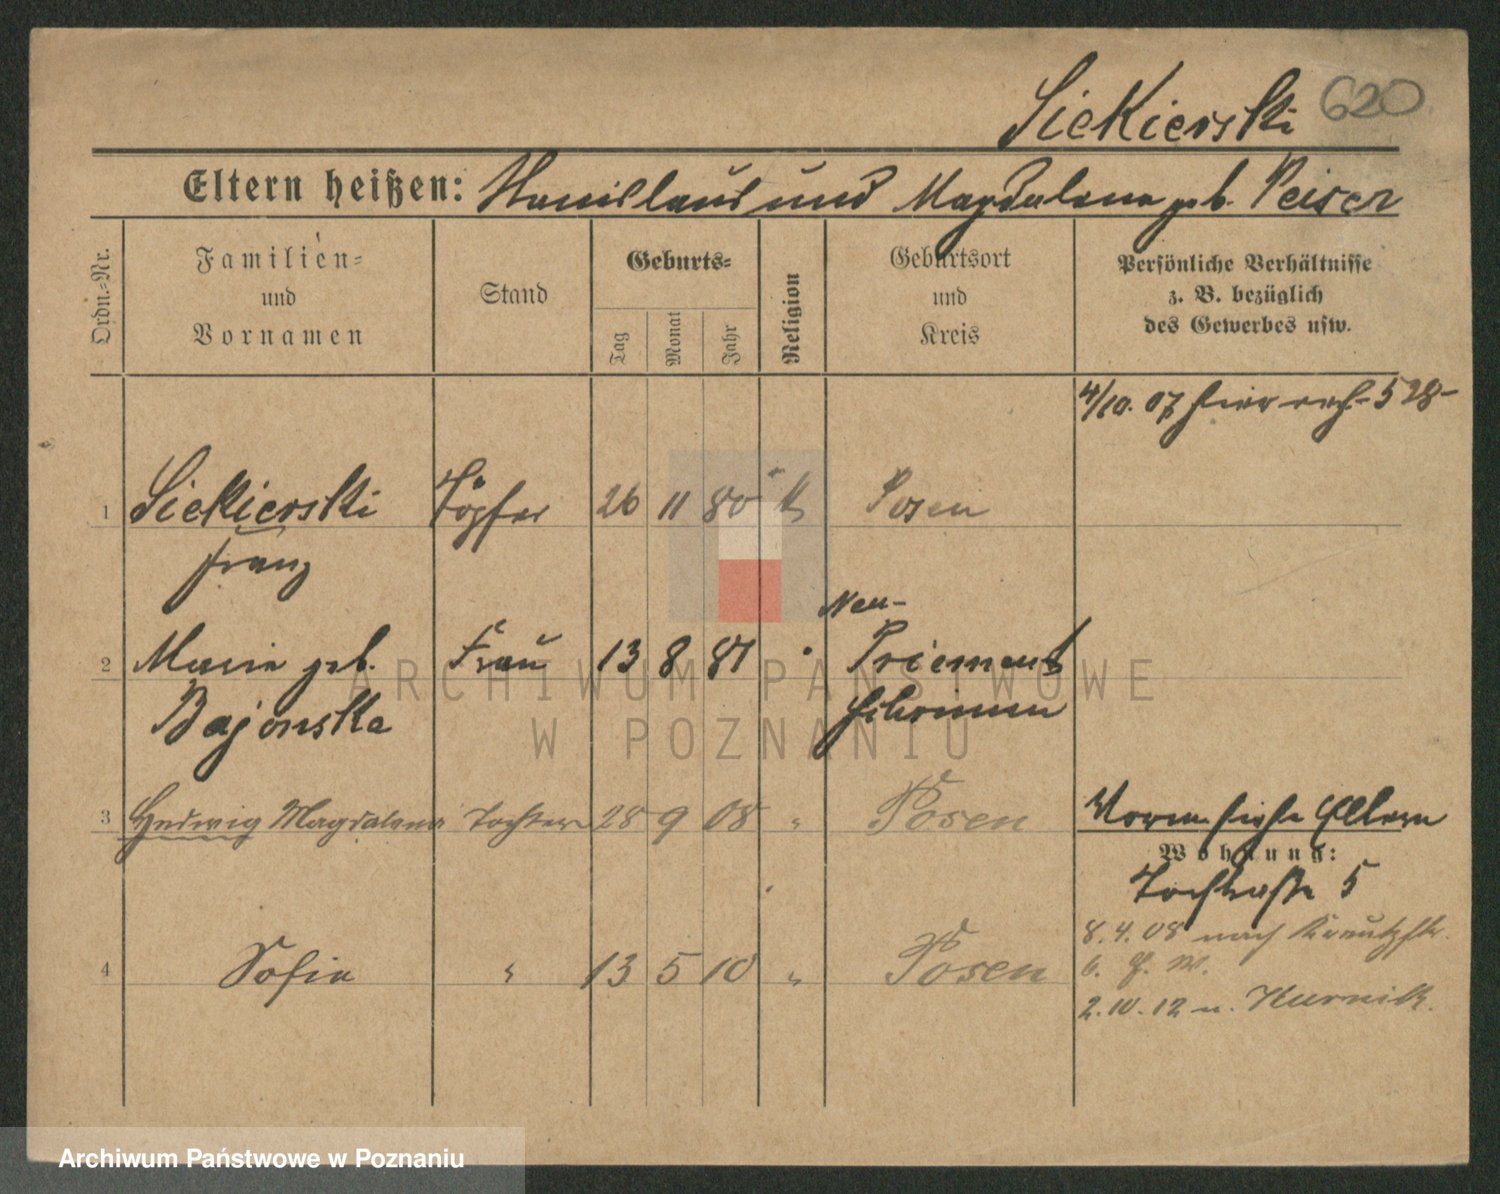 Siekierski 620
Eltern heißen: Stanislaus und Magdalena geb. Peiser
Ordn.-Nr.
Familien-
und
Vornamen
Stand
Geburts-
Tag
Monat
Jahr
Religion
Geburtsort
und
Kreis
Persönliche Verhältnisse
z. B. bezüglich
des Gewerbes usw.
4/10. 07 hier
1 Siekierski Töpfer 26 11 80 k Posen
Franz
Neu-
2 Marie geb. Frau 13 8 81 Priement
Bajonska
3 Hedwig Magdalena Tochter 28 9 08 " Posen
siehe Eltern
Wohnung:
5
8.4.08 nach
4 Sofie " 13 5 10 " Posen
6. H. W.
2.10.12 n. Kurnik.
ARCHIWUM PAŃSTWOWE
W POZNANIU
Archiwum Państwowe w Poznaniu